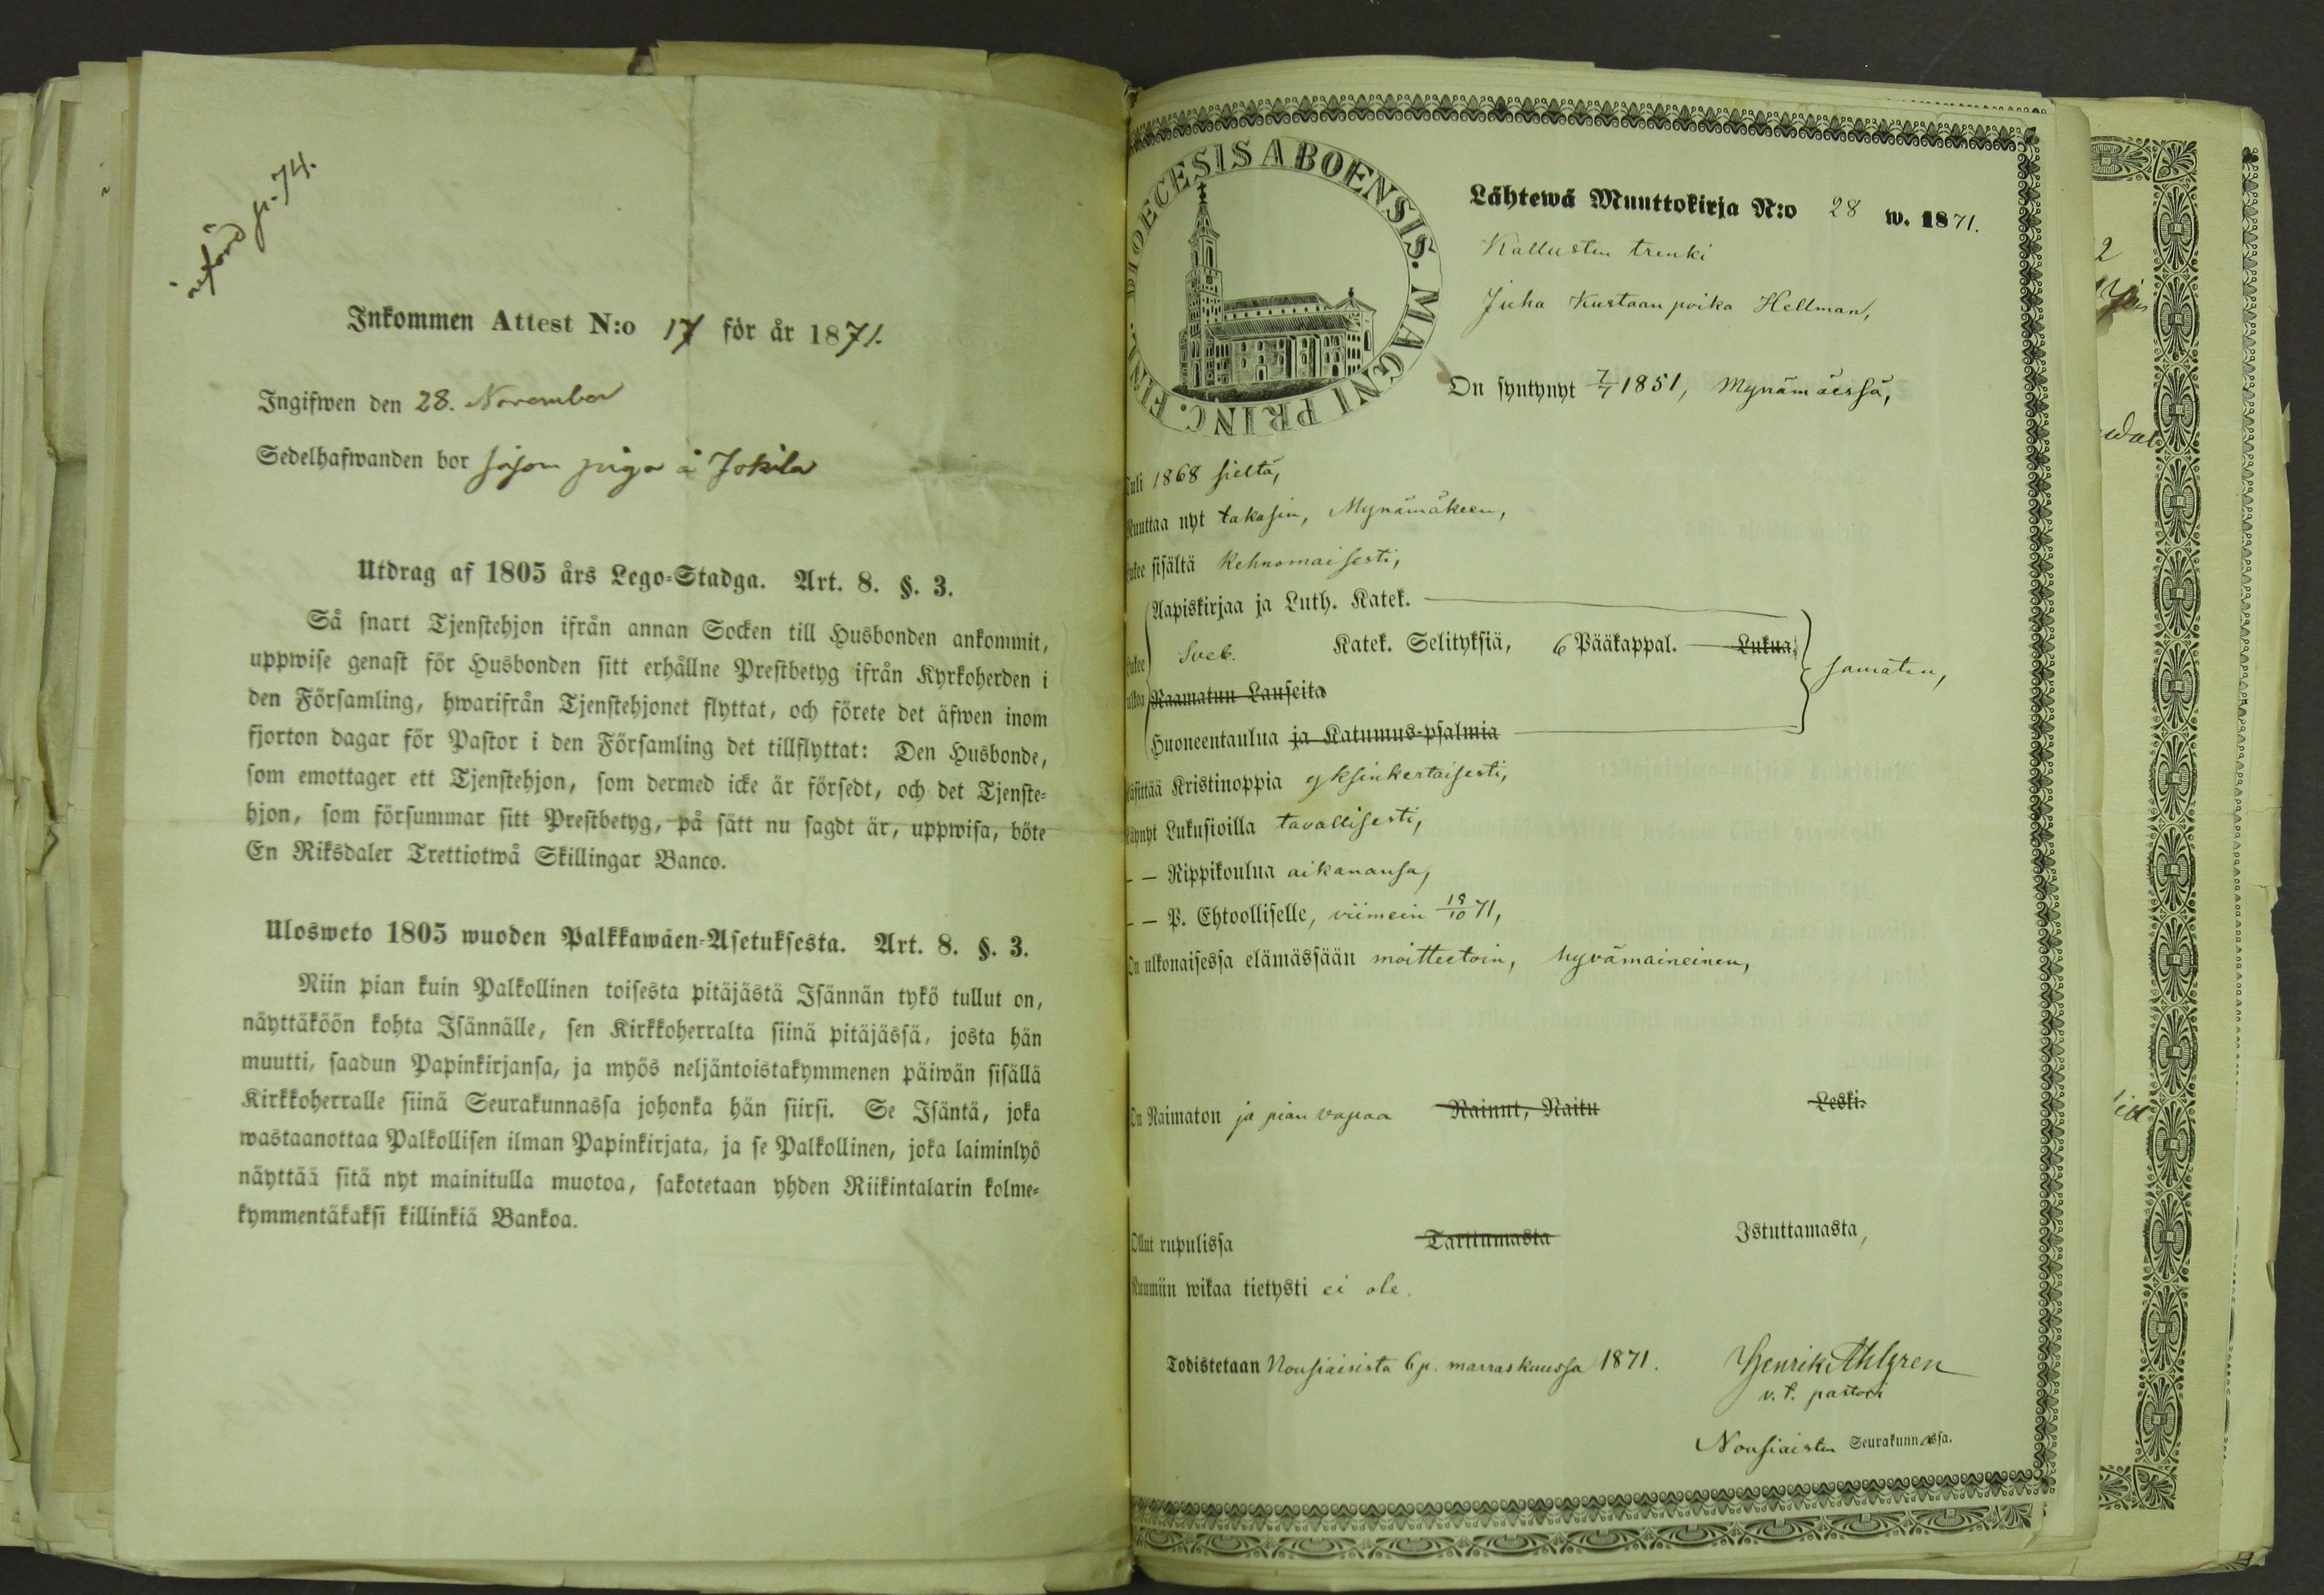 införd p. 74.
Inkommen Attest N:o 17 för år 1871.
Ingifwen den 28. November
Sedelhafwanden bor såsom piga å Jokila
Utdrag af 1805 års Lego-Stadga. Art. 8. §. 3.
Så snart Tjenstehjon ifrån annan Socken till Husbonden ankommit,
uppwise genast för Husbonden sitt erhållne Prestbetyg ifrån Kyrkoherden i
den Församling, hwarifrån Tjenstehjonet flyttat, och förete det äfwen inom
fjorton dagar för Pastor i den Församling det tillflyttat: Den Husbonde,
som emottager ett Tjenstehjon, som dermed icke är försedt, och det Tjenste-
hjon, som försummar sitt Prestbetyg, på sätt nu sagdt är, uppwisa, böte
En Riksdaler Trettiotwå Skillingar Banco.
Ulosweto 1805 wuoden Palkkawäen-Asetuksesta. Art. 8. §. 3.
Niin pian kuin Palkollinen toisesta pitäjästä Isännän tykö tullut on,
näyttäköön kohta Isännälle, sen Kirkkoherralta siinä pitäjässä, josta hän
muutti, saadun Papinkirjansa, ja myös neljäntoistakymmenen päiwän sisällä
Kirkkoherralle siinä Seurakunnassa johonka hän siirsi. Se Isäntä, joka
wastaanottaa Palkollisen ilman Papinkirjata, ja se Palkollinen, joka laiminlyö
näyttää sitä nyt mainitulla muotoa, sakotetaan yhden Riikintalarin kolme-
kymmentäkaksi killinkiä Bankoa.
DIOECESIS ABOENSIS. MAGNI PRINC. FINL.
Lähtewä Muuttokirja N:o 28 w. 1871.
Kallusten trenki
Juha Kustaanpoika Hellman,
On syntynyt 7/7 1851, Mynämäessä,
Tuli 1868 sieltä,
Muuttaa nyt takasin, Mynämäkeen,
Lukee sisältä kehnomaisesti,
Aapiskirjaa ja Luth. Katek.
Lukee Sveb. Katek. Selityksiä, 6 Pääkappal. Lukua, samaten,
ulkoa Raamatun Lauseita
Huoneentaulua ja Katumus-psalmia
Käsittää Kristinoppia yksinkertaisesti,
Käynyt Lukusioilla tavallisesti,
— — Rippikoulua aikanansa,
— — P. Ehtoolliselle, viimein 19/10 71,
On ulkonaisessa elämässään moitteetoin, hyvämaineinen,
On Naimaton ja pian vapaa Nainut, Naitu Leski.
Ollut rupulissa Tarttumasta Istuttamasta,
Ruumiin wikaa tietysti ei ole.
Todistetaan Nousiaisista 6 p. marraskuussa 1871. Henrik Ahlgren
v. t. pastori
Nousiaisten Seurakunnassa.